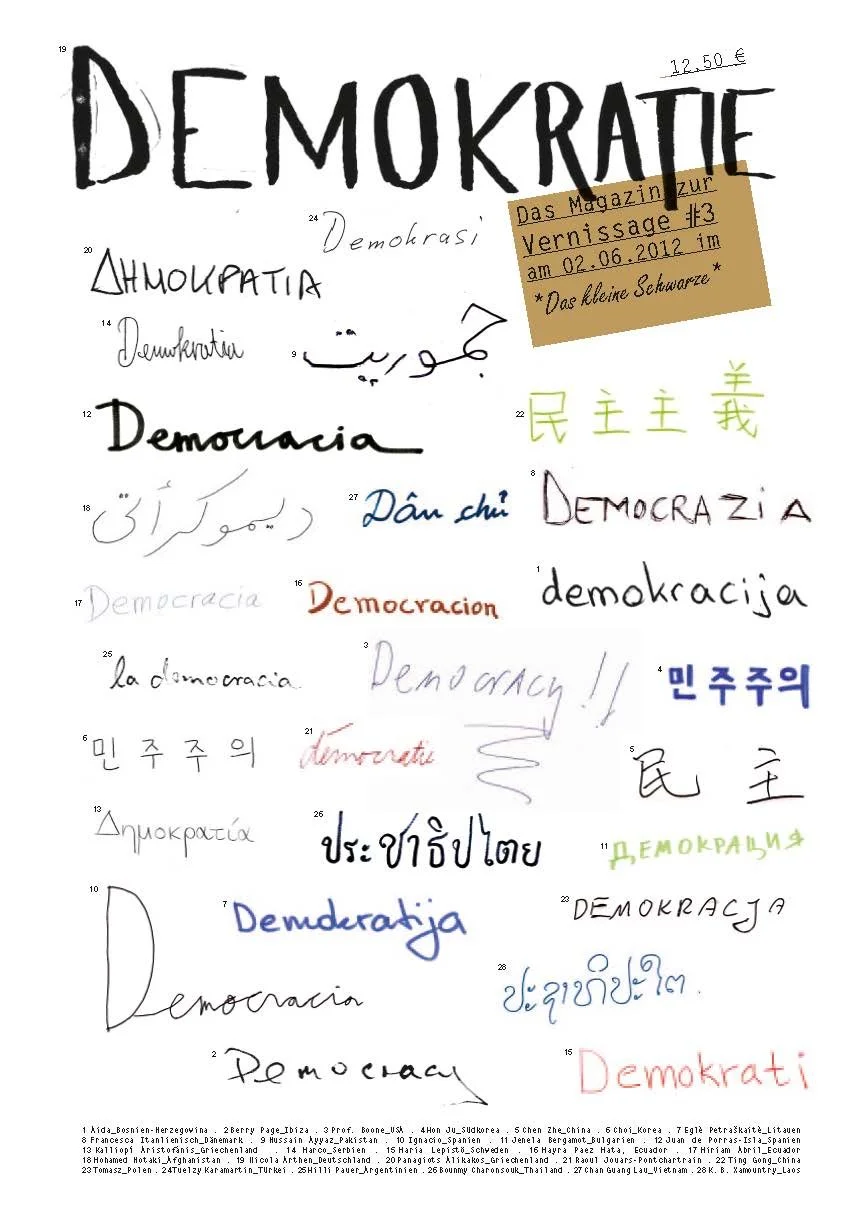 19
DEMOKRATIE
12.50 €
Das Magazin zur
Vernissage #3
am 02.06.2012 im
*Das kleine Schwarze*
24 Demokrasi
20 ΔΗΜΟΚΡΑΤΙΑ
14 Demokratia
9 جموریت
12 Democracia
22 民主主義
18 ديموكرأتى
27 Dân chủ
8 DEMOCRAZiA
17 Democracia
16 Democracion
1 demokracija
25 la democracia
3 Democracy !!
4 민주주의
6 민주주의
21 démocratie
5 民主
13 Δημοκρατία
26 ประชาธิปไตย
11 ДЕМОКРАЦИЯ
10 Democracia
7 Demokratija
23 DEMOKRACJA
28 ປະຊາທິປະໃຕ.
2 Democracy
15 Demokrati
1 Aida_Bosnien-Herzegowina . 2 Berry Page_Ibiza . 3 Prof. Boone_USA . 4 Hon Ju_Südkorea . 5 Chen Zhe_China . 6 Choi_Korea . 7 Eglė Petraškaitė_Litauen
8 Francesca Itanlienisch_Dänemark . 9 Hussain Ayyaz_Pakistan . 10 Ignacio_Spanien . 11 Jenela Bergamot_Bulgarien . 12 Juan de Porras-Isla_Spanien
13 Kalliopi Aristofanis_Griechenland . 14 Marco_Serbien . 15 Maria Lepistö_Schweden . 16 Mayra Paez Mata, Ecuador . 17 Miriam Abril_Ecuador
18 Mohamed Hotaki_Afghanistan . 19 Nicola Arthen_Deutschland . 20 Panagiots Alikakos_Griechenland . 21 Raoul Jouars-Pontchartrain . 22 Ting Gong_China
23 Tomasz_Polen . 24 Tuelzy Karamartin_Türkei . 25 Willi Pauer_Argentinien . 26 Bounmy Charonsouk_Thailand . 27 Chan Guang Lau_Vietnam . 28 K. B. Xamountry_Laos